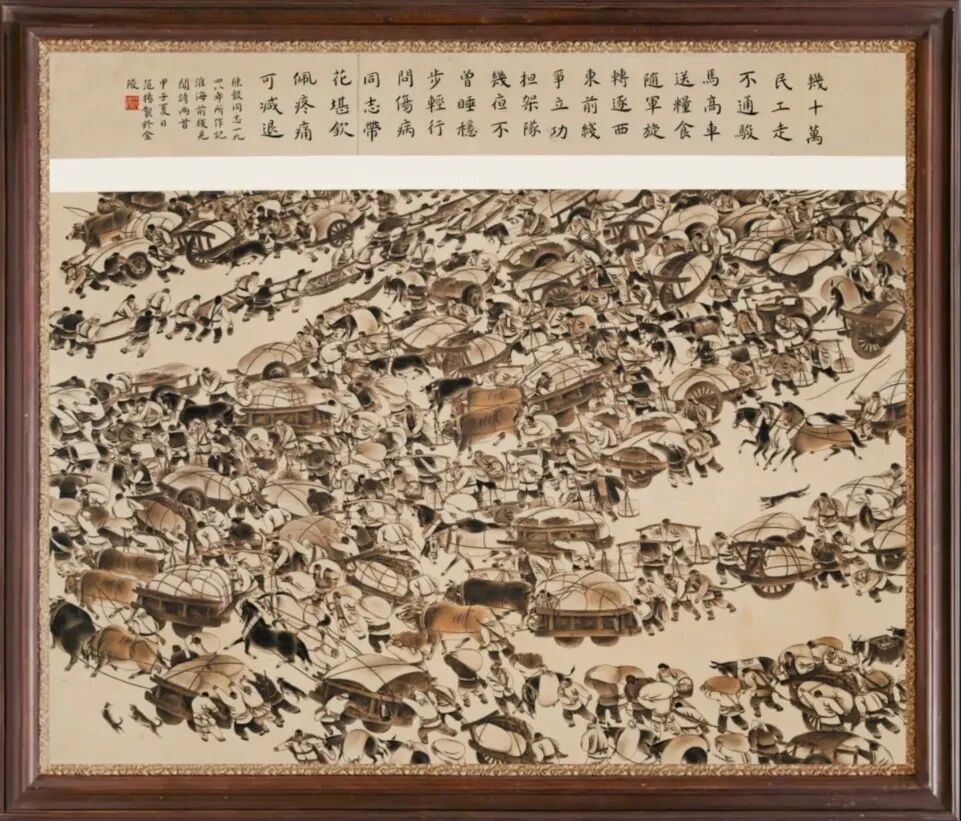 幾十萬
民工走
不通駿
馬高車
送糧食
隨軍旋
轉逐西
東前綫
爭立功
担架隊
幾亱不
曾睡穩
步輕行
問傷病
同志帶
花堪欽
佩疼痛
可減退
陳毅同志一九
四八年所作記
淮海前綫見
聞詩兩首
甲子夏日
范揚製於金
陵